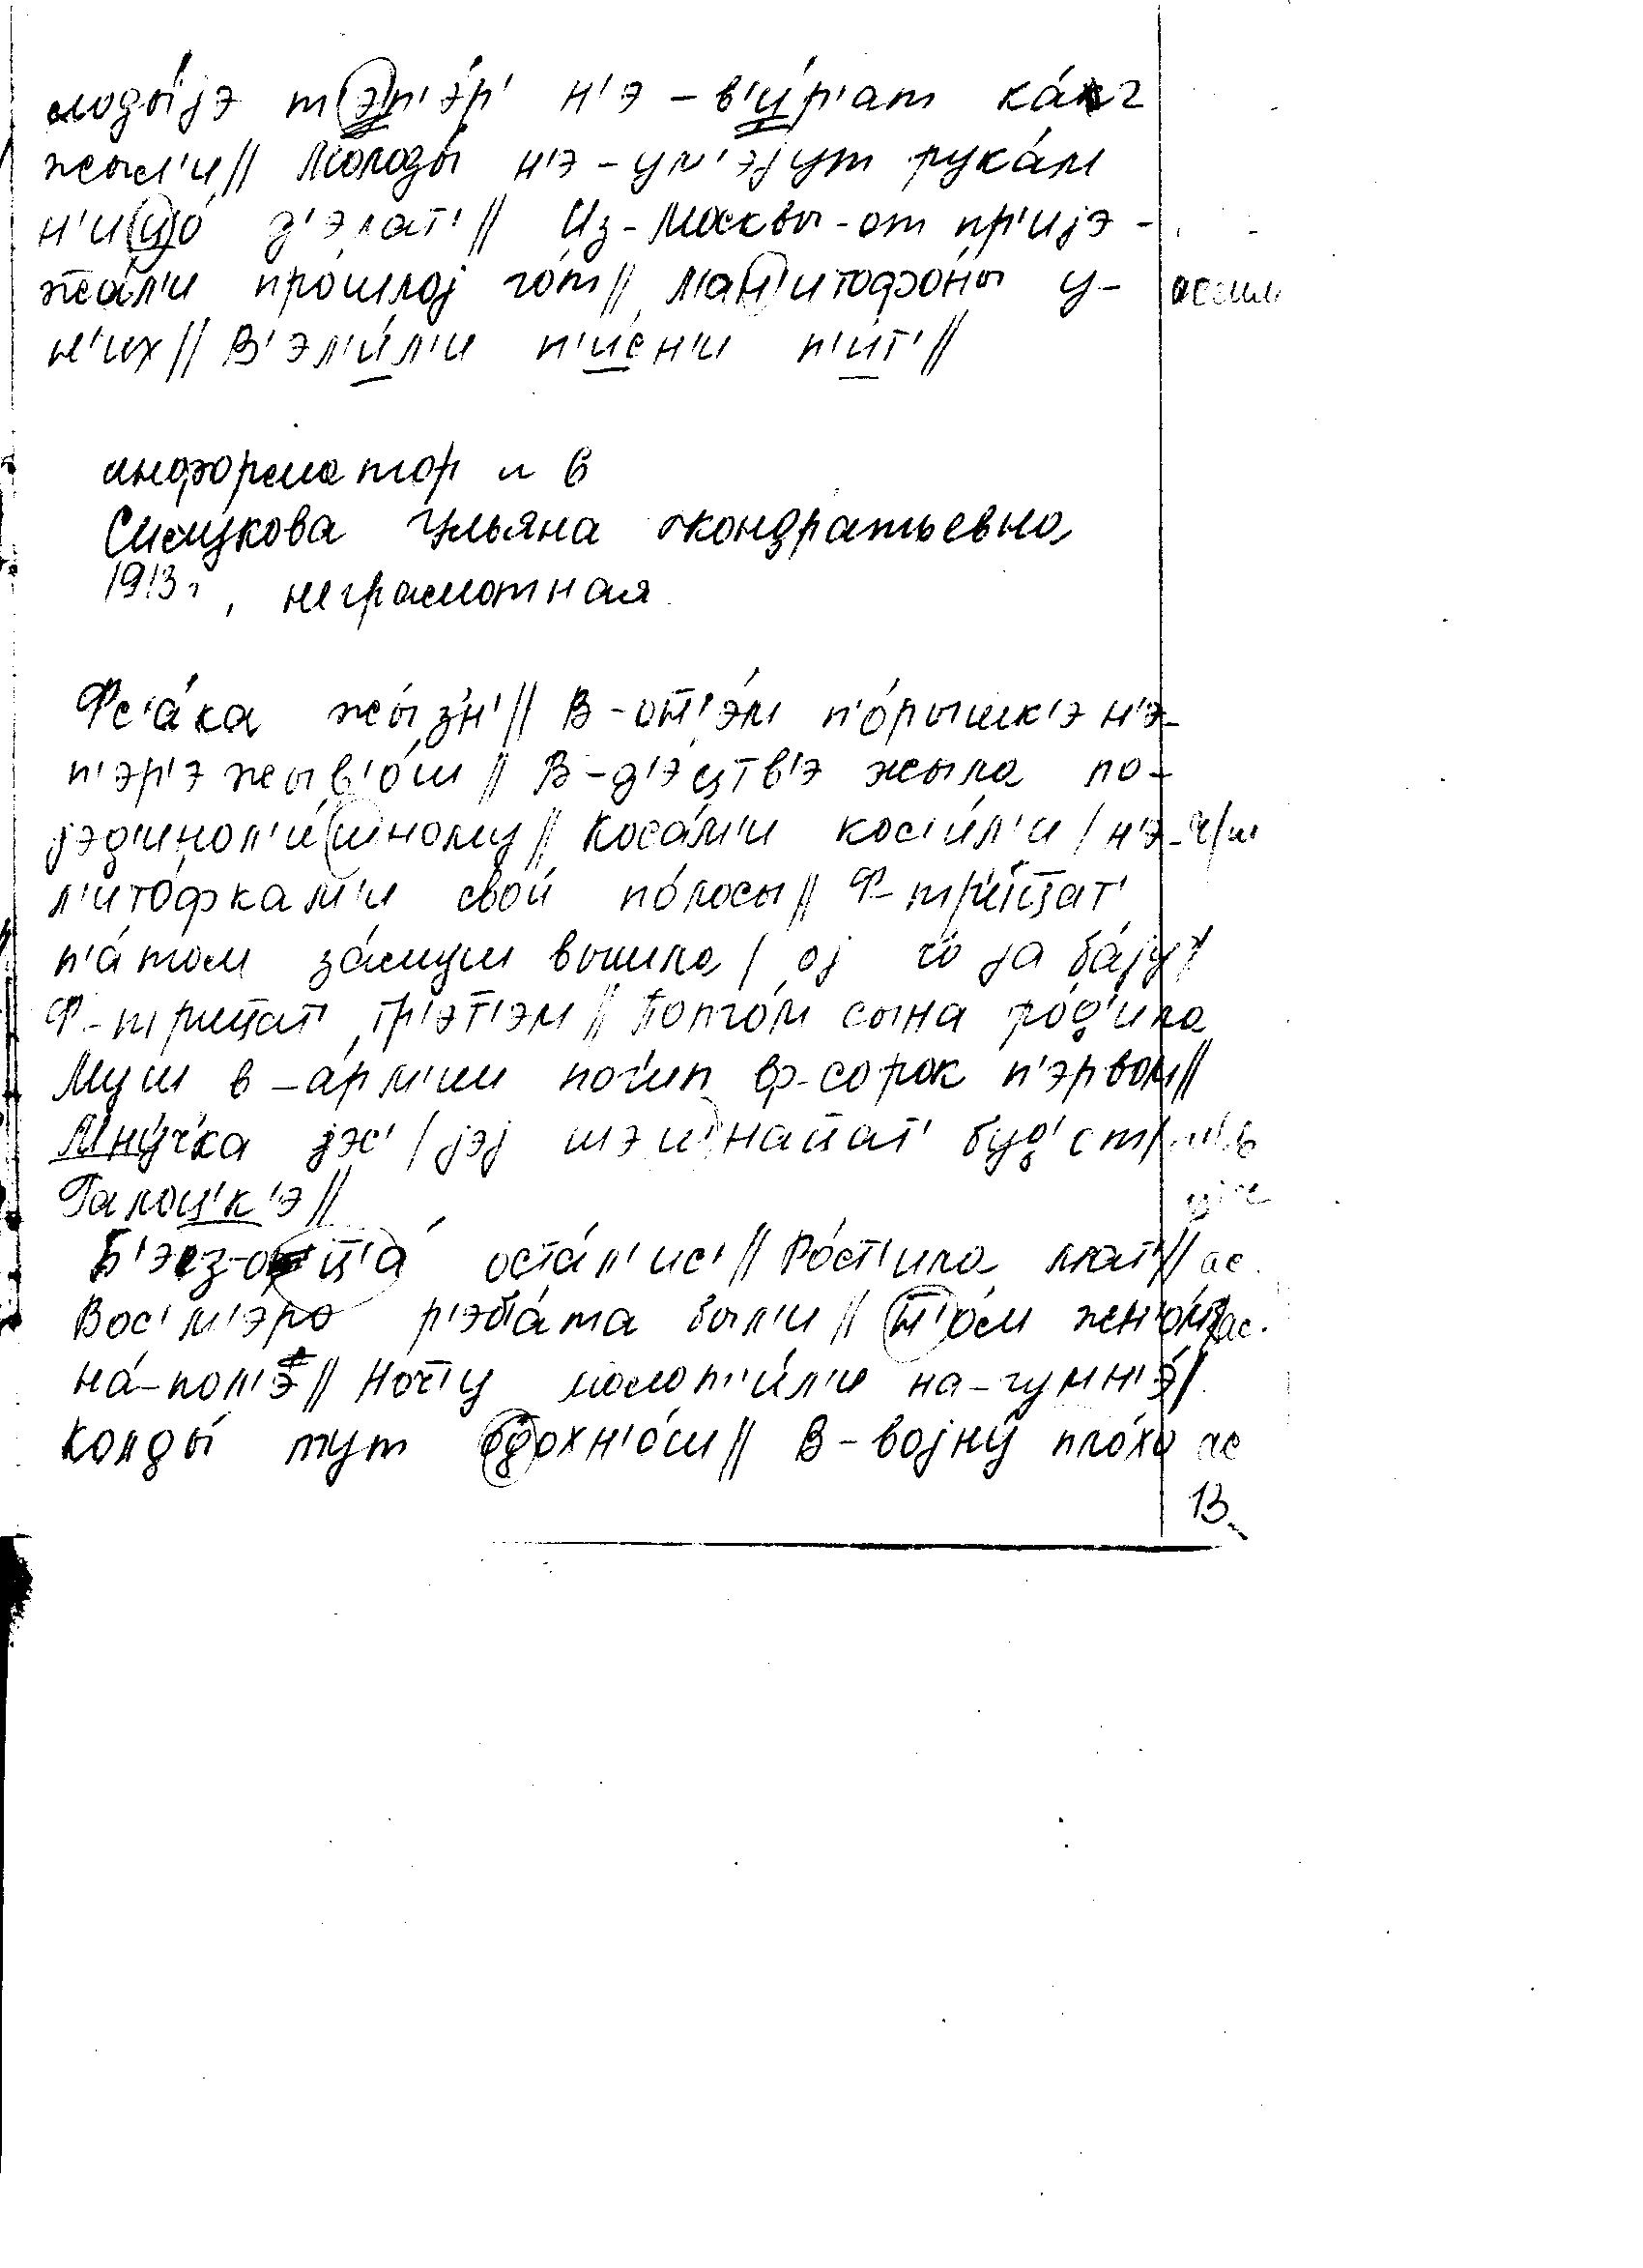 лоды́јэ тэп'э́р' н'э-в'и́р'ат ка́к
жыл'и // Молоды́ н'э-ум'эјут рука́м
н'ицо́ д'э́лат' // Из-Москвы-от пр'ијэ-
жа́л'и про́шлој го́т // ман'итофо́ны у- ассим
н'их // В'эл'и́л'и п'и́сн'и п'ит' //
информатор
Ульяна Кондратьевна
1913г, неграмотная
Фс'а́ка жы́зн' // В-от'э́м п'о́рышк'э н'э-
п'эр'эжыв'о́ш // В-д'э́цтв'э жыла по-
јэд'инол'и́шному // Коса́м'и кос'и́л'и / н'э- ч/ш
л'ито́фкам'и свои́ по́лосы // Ф-тр'и́ццат'
п'а́том за́муш вышла / ој чо́ ја ба́ју /
Ф-тр'иццат' тр'э́т'эм // Потом сына род'ила
Муш в-а́рм'ии поги́п ф-сорок п'эрвом //
Мну́ч'ка јэс' / јэј шэшнацат' буд'с т/
Галоц'к'э //
Б'эз-оц'ца́ оста́л'ис' // Ро́ст'ила мат' // ас.
Вос'м'эро р'эб'а́та был'и // т'о́м жн'о́м ас.
на́-пол'э // Ноч'јy молот'и́л'и на-гумн'э́ /
Колды́ тут одохн'о́ш // В-војну́ пло́хо ас
13